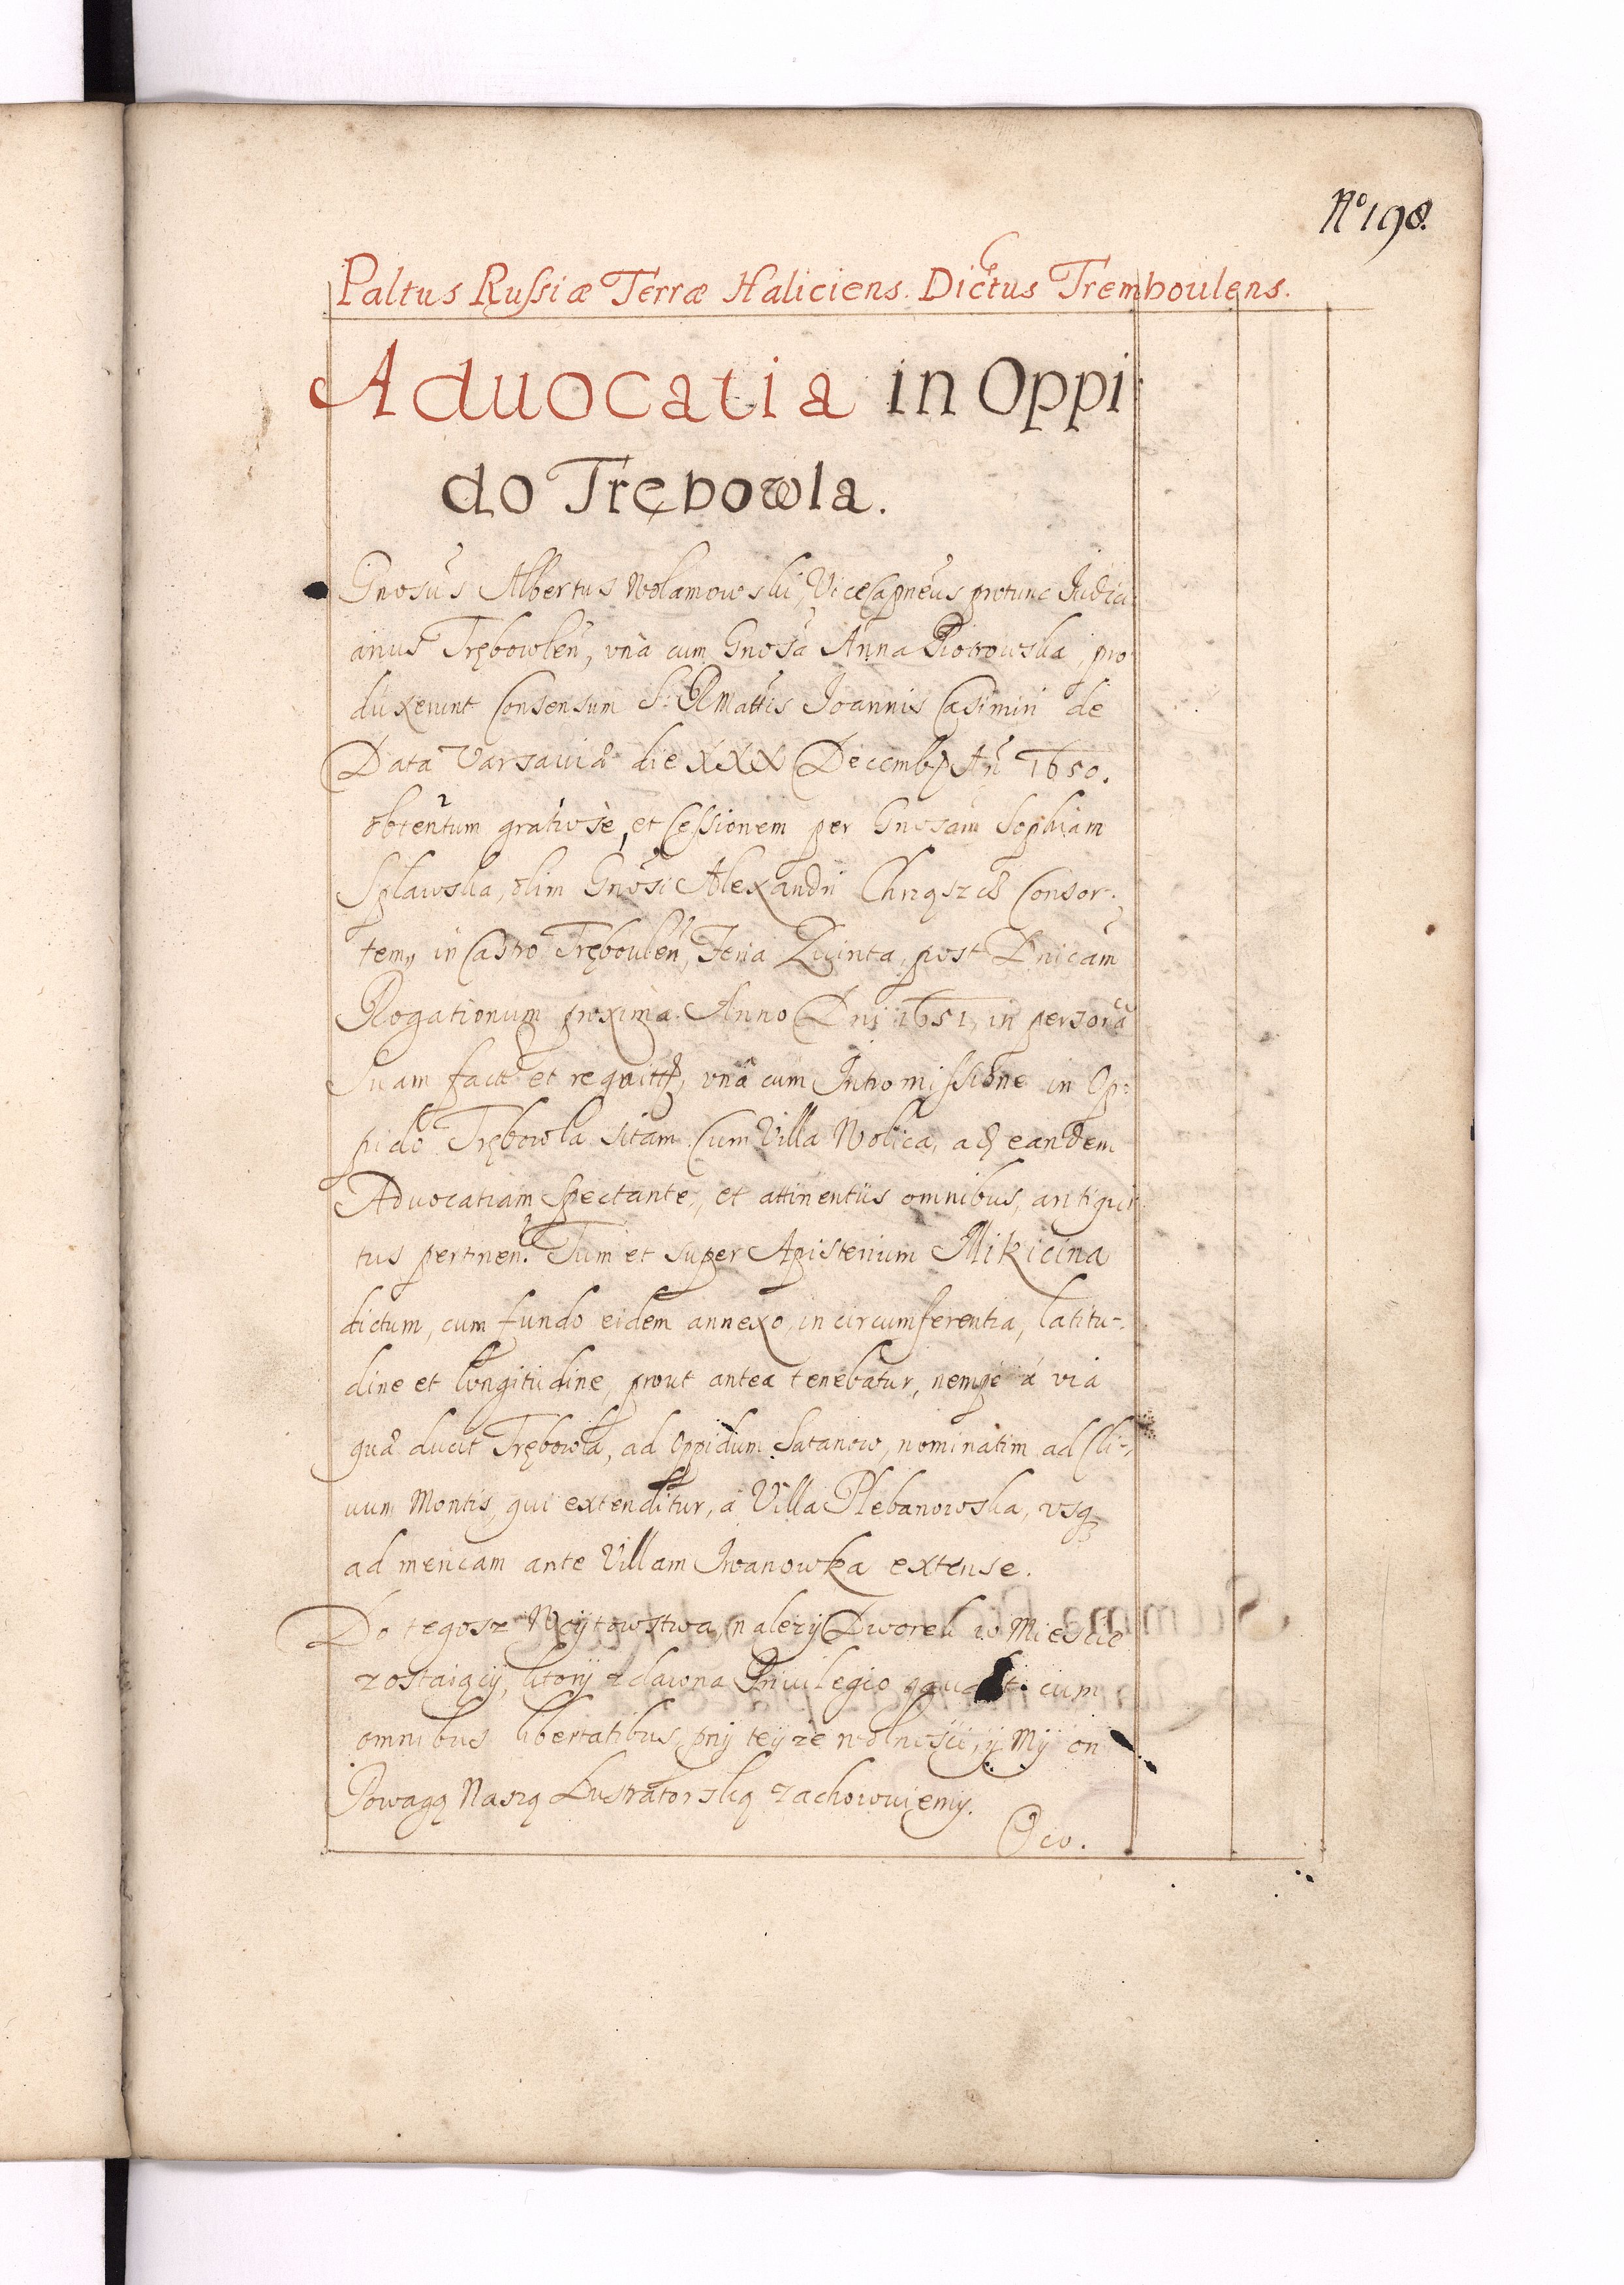 No 198.
Paltus Russiæ Terræ Haliciens. Dictus Tremboulens.
Aduocatia in Oppi
do Trębowla.
Gnosus Albertus Wolamowski, Vicecapneus protunc Iudici
arius Trębowlen, vnà cum Gnosa Anna Piotrowska, pro
duxerunt Consensum S: R Mattis Joannis Casimiri de
Data Varsauiæ die XXX Decemb An 1650.
obtentum gratiosè, et Cessionem per Gnosam Sophiam
Spławska, olim Gnosi Alexandri Chrząszcz Consor-
tem, in Castro Tręboulen, Feria Quinta, post Dnicam
Rogationum proxima Anno Dni 1651, in personã
Suam fact et, vnâ cum Intromissione in Op:
pido Trębowla sitam Cum Villa Wolica, ad eandem
Aduocatiam Spectante, et attinentiis omnibus, antiqui
tus pertinen. Tum et super Apisterium Mikicina
dictum, cum fundo eidem annexo, in circumferentia, latitu-
dine et longitudine, prout antea tenebatur, nempè à via
quæ ducit Trębowla, ad Oppidum Satanow, nominatim ad Cli-
uum Montis, qui extenditur, à Villa Plebanowska, vsq
ad mericam ante Villam Iwanowka extense.
Do tegosz Woytowstwa, nalezy Dworek w Miescie
zostaiący, ktory zdawna Priuilegio cum
omnibus libertatibus, przy teyze wolnosci, y My on
Powagą Naszą Lustratorską zachowuiemy.